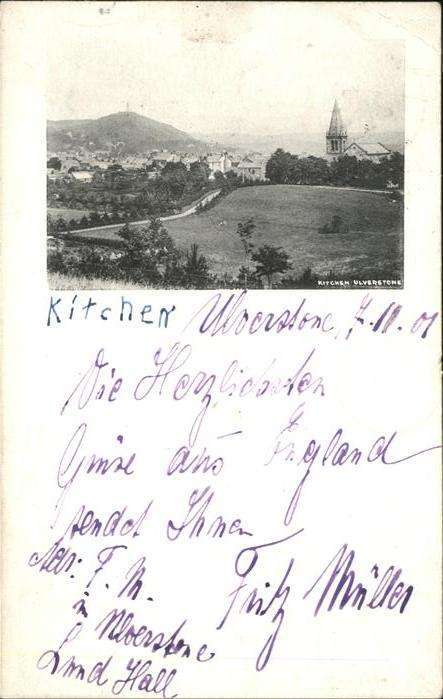 KITCHEN ULVERSTONE
Kitchen Ulverstone, 7.10.01
Die Herzlichsten
Grüse aus England
sendet Ihnen
Fritz Müller
Adr: F. M.
in Ulverstone
Lund Hall